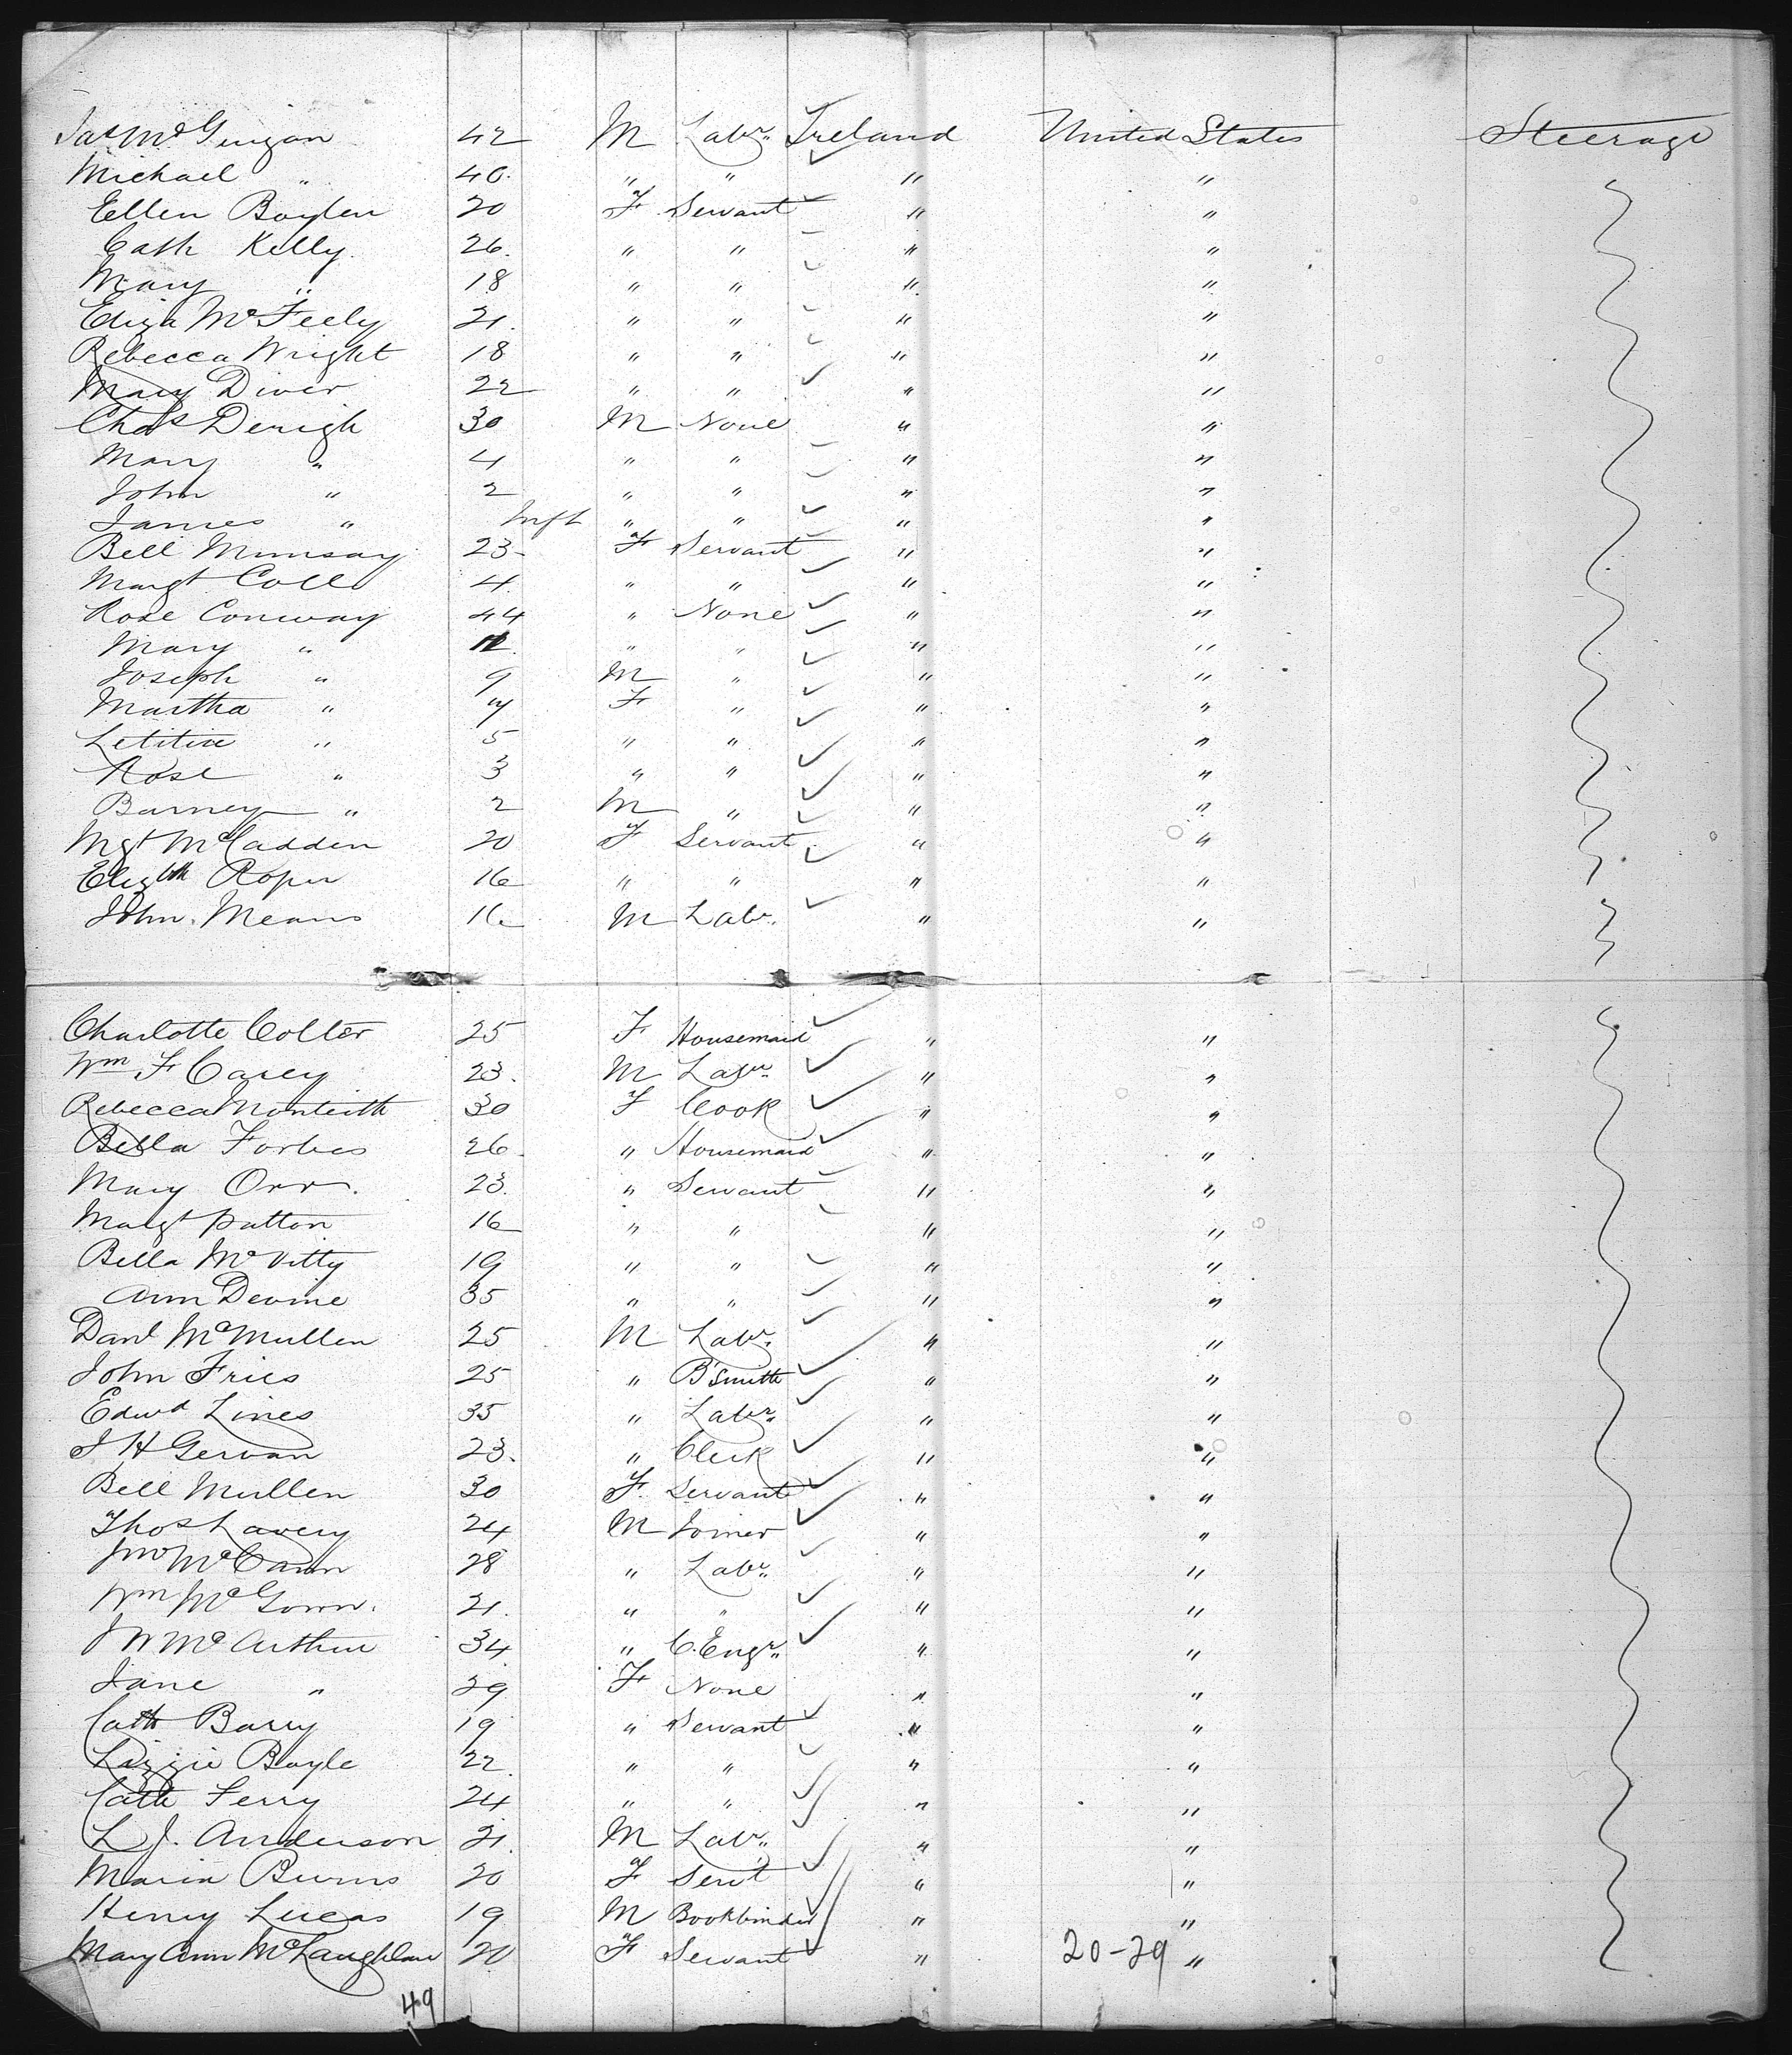 Jas McGuigan 42 M Labr. Ireland United States Steerage
Michael " 40. " " " "
Ellen Boylen 20 F Servant " "
Cath Kelly. 26. " " " "
Mary " 18 " " " "
Eliza McFeely 21. " " " "
Rebecca Wright 18 " " " "
Mary Diver 22 " " " "
Chas Derigh 30 M None " "
Mary " 4 " " " "
John " 2 " " " "
James " Inft " " " "
Bell 23- F Servant " "
Margt Coll 4. " " " "
Rose Conway 44 " None " "
Mary " " " " "
Joseph " 9 M " " "
Martha " 7 F " " "
Letitia " 5 " " " "
Rose " 3 " " " "
Barney " 2 M " " "
Mgt McCadden 20 F Servant " "
Elizbth Roper 16 " " " "
John. Means 16 M Labr. " "
Charlotte Colter 25 F Housemaid " "
Wm F Carey 23. M Labr. " "
Rebecca Monteith 30 F Cook " "
Bella Forbes 26. " Housemaid " "
Mary Orr. 23. " Servant " "
Margt Patton 16 " " " "
Bella McVitty 19 " " " "
Ann Devine 35 " " " "
Danl McMullen 25 M Labr. " "
John Fries 25 " B'Smith " "
Edwd Lines 35 " Labr. " "
J H Gervan 23. " Clerk " "
Bell Mullen 30 F. Servant " "
Thos Lavery 24 M Joiner " "
Jno McCann 28 " Labr. " "
Wm McGown. 21. " " " "
J W McArthur 34. " C. Engr. " "
Jane " 29 F None " "
Cath Barry 19 " Servant " "
Lizzie Boyle 22. " " " "
Cath Ferry 24 " " " "
L J. Anderson 21. M Labr. " "
Maria Burns 20 F Servt " "
Henry Lucas 19 M Bookbinder " "
Mary Ann McLaughlan 20 F Servant " 20-29 "
49